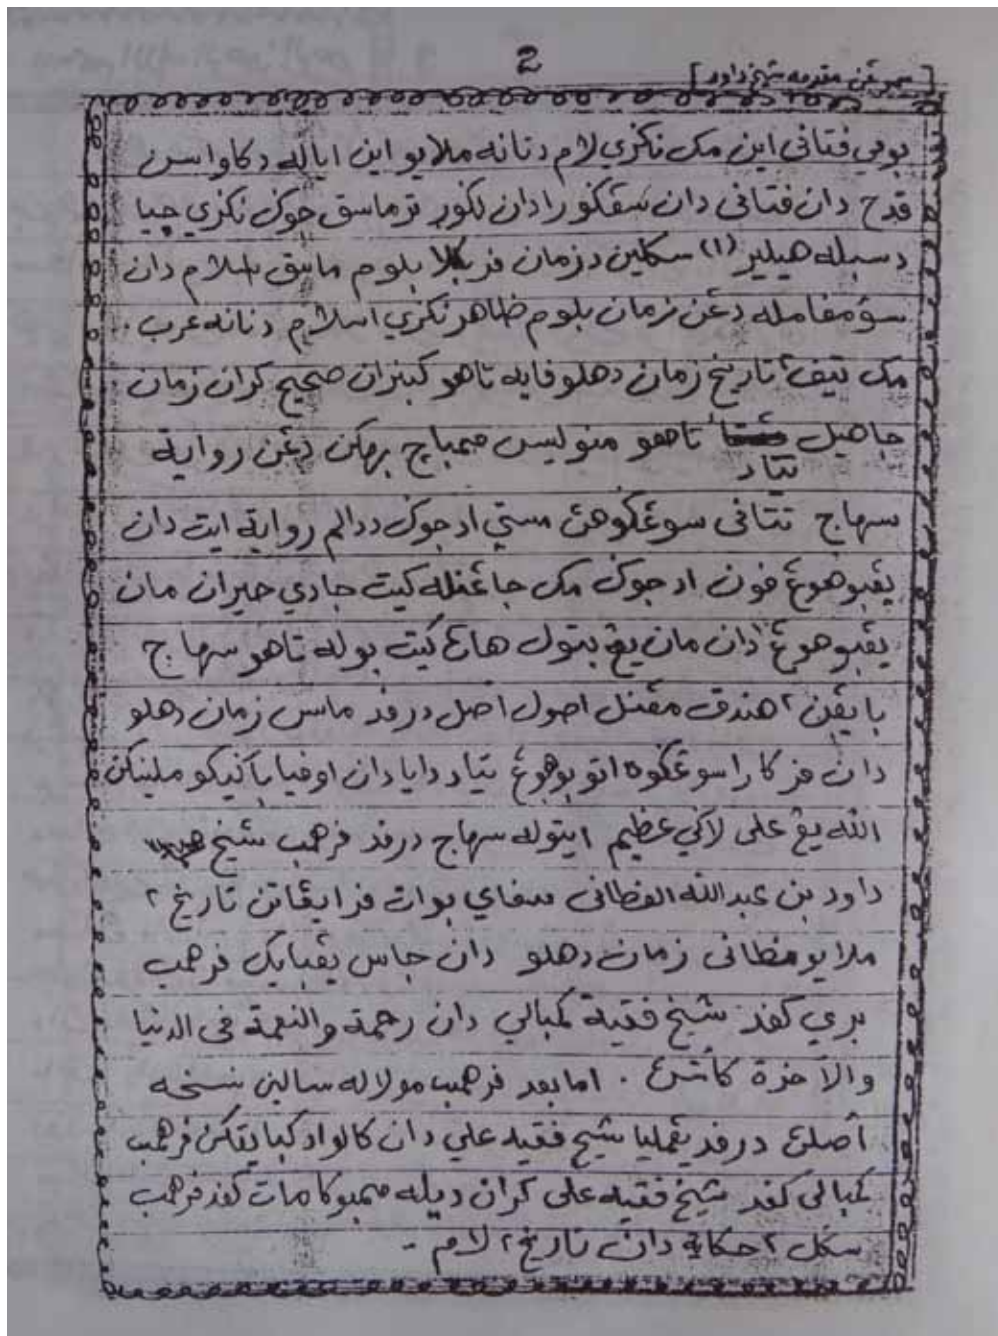 2
[سمبوڠن مقدمه شيخ داود]
بومي فتاني اين مك نڬري لام دتانه ملايو اين اياله دكاواسن
قدح دان فتاني دان سڠݢورا دان لڬور ترماسق جوݢ نڬري چيا
دسبله هيلير (١) سكلين دزمان فربكالا بلوم ماسق اسلام دان
سؤمفامله دڠن زمان بلوم ظاهر نڬري اسلام دتانه عرب.
مك تيف٢ تاريخ زمان دهلو فايه تاهو كبنران صحيح كران زمان
جاهيل تياد تاهو منوليس ممباچ بهكن دڠن رواية
سهاج تتافي سوڠڬوهن مستي اد جوݢ ددالم رواية ايت دان
يڠبوهوڠ فون اد جوݢ مك جاڠنله كيت جادي حيران مان
يڠبوهوڠ دان مان يڠ بتول هاڽ كيت بوله تاهو سهاج
بايڠن٢ هندق مڠنل اصول اصل درفد ماس زمان دهلو
دان فركارا سوڠڬوه اتو بوهوڠ تياد دايا دان اوفيا باݢيكو ملينكن
الله يڠ علي لاݢي عظيم ايتوله سهاج درفد فرهمب شيخ
داود بن عبدالله الفطاني سفاي بوات فرايڠاتن تاريخ٢
ملايو فطاني زمان دهلو دان جاس يڠباءيك فرهمب
بري كفد شيخ فقيه كمبالي دان رحمة والنعمة في الدنيا
والآخرة كأنتڽ. امابعد فرهمب مولاله سالين نسخه
أصلڽ درفد يڠمليا شيخ فقيه علي دان كالو اد كباءيقكن فرهمب
كمبالي كفد شيخ فقيه علي كران دياله ممبوكا مات كفد فرهمب
سݢل٢ حكاية دان تاريخ٢ لام.-